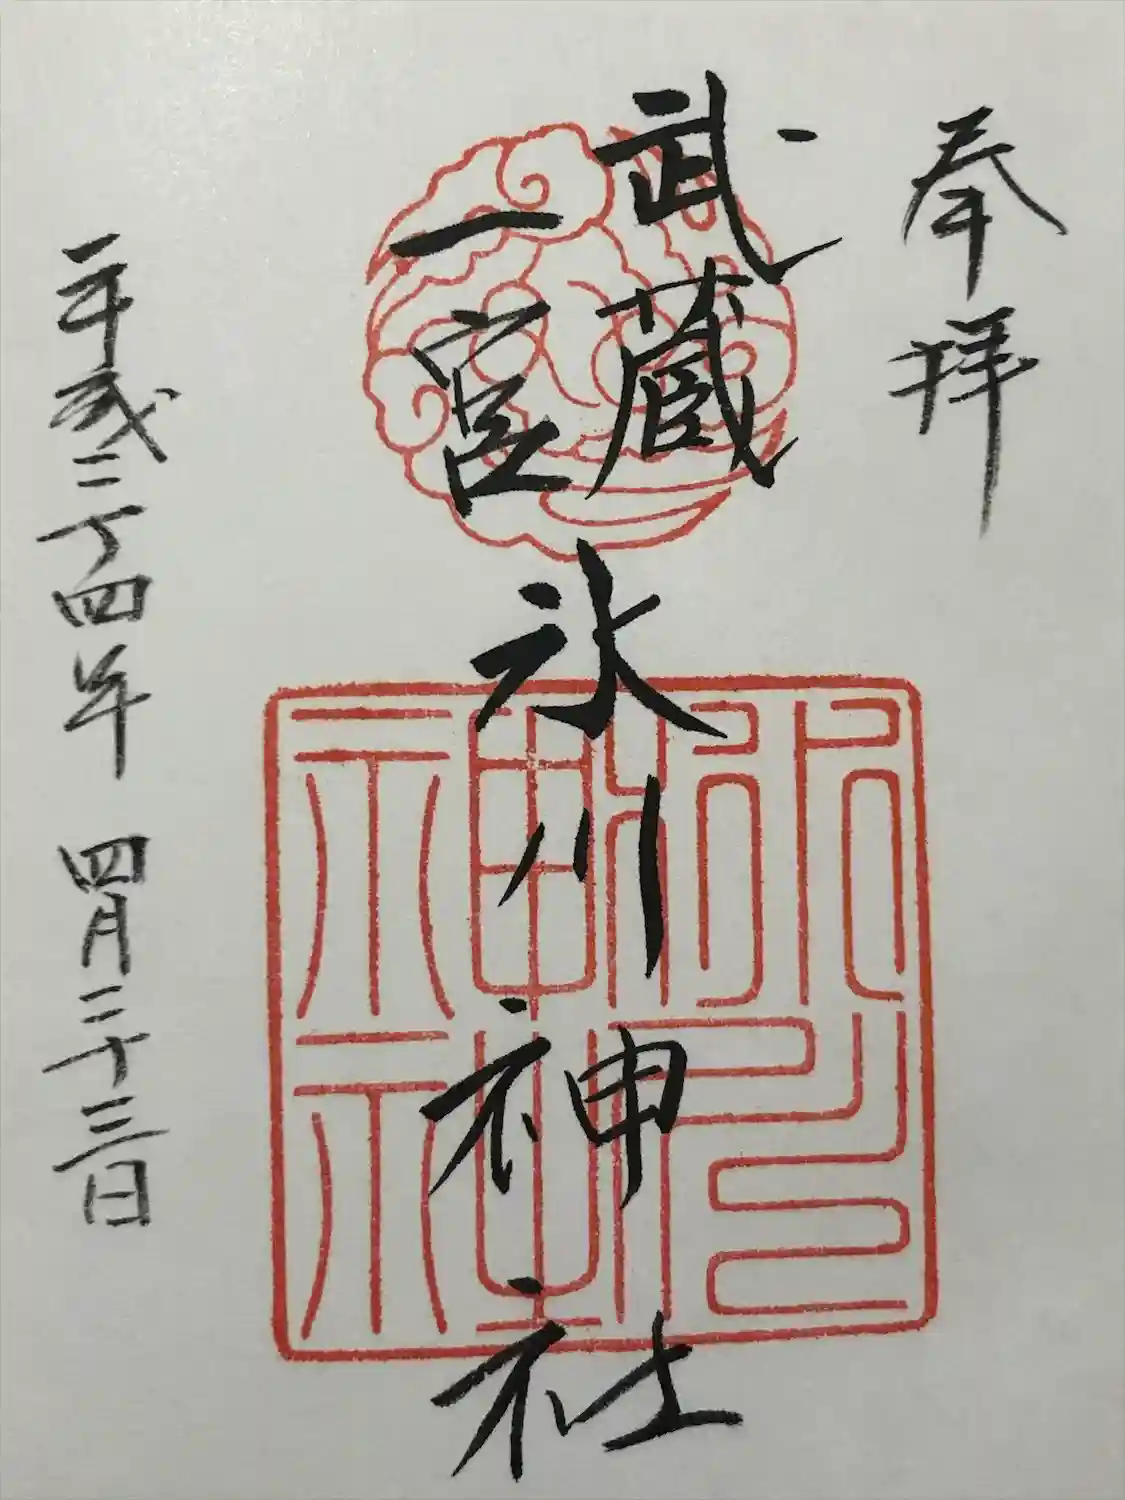 奉拝
武蔵
一宮
氷川神社
平成二十四年 四月二十三日
氷川神社印